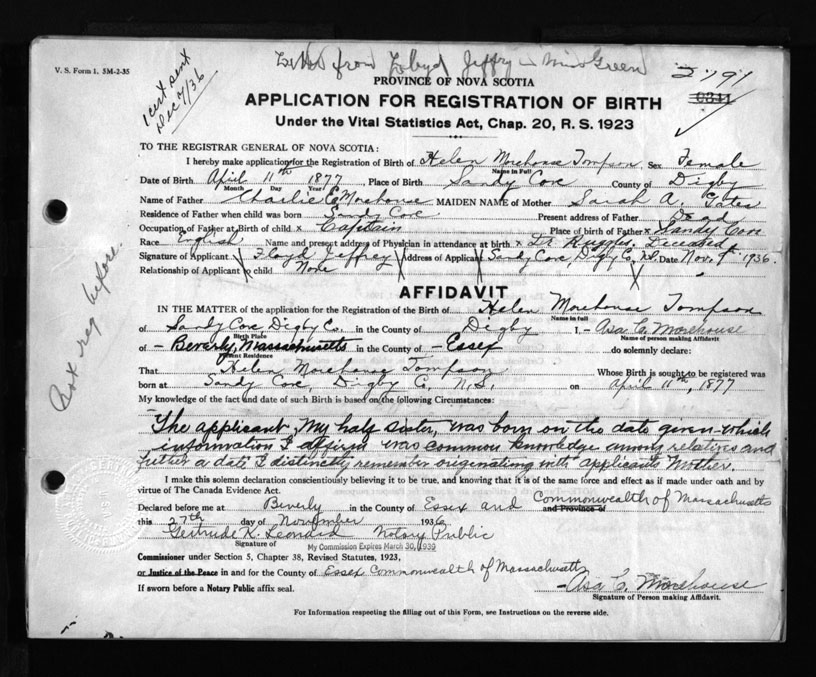 Letter from Lloyd Jeffry - Miss Green
V. S. Form 1, 5M-2-35
1 cert sent
Dec 7/36
2791
PROVINCE OF NOVA SCOTIA
APPLICATION FOR REGISTRATION OF BIRTH
Under the Vital Statistics Act, Chap. 20, R. S. 1923
TO THE REGISTRAR GENERAL OF NOVA SCOTIA:
I hereby make application for the Registration of Birth of Helen Morehouse Tompson Sex Female
Name in Full
Date of Birth April 11th 1877 Place of Birth Sandy Cove County of Digby
Month Day Year
Name of Father Charlie E Morehouse MAIDEN NAME of Mother Sarah A. Gates
Residence of Father when child was born Sandy Cove Present address of Father Dead
Occupation of Father at Birth of child x Captain Place of birth of Father x Sandy Cove
Race English Name and present address of Physician in attendance at birth x Dr. Ruggles. Deceased
Signature of Applicant Floyd Jeffrey Address of Applicant Sandy Cove, Digby Co, N.S. Date Nov. 9th 1936.
Relationship of Applicant to child None
Not reg before.
AFFIDAVIT
IN THE MATTER of the application for the Registration of the Birth of Helen Morehouse Tompson
Name in full
of Sandy Cove Digby Co. in the County of Digby I. - Asa C. Morehouse
Birth Place Name of person making Affidavit
of - Beverly, Massachusetts in the County of - Essex do solemnly declare:
Present Residence
That Helen Morehouse Tompson Whose Birth is sought to be registered was
born at Sandy Cove, Digby Co, N.S. on April 11th, 1877
My knowledge of the fact and date of such Birth is based on the following Circumstances:
The applicant, my half sister, was born on the date given - which
information I affirm was common knowledge among relatives and
futher a date I distinctly remember originating with applicants Mother.
I make this solemn declaration conscientiously believing it to be true, and knowing that it is of the same force and effect as if made under oath and by
virtue of The Canada Evidence Act.
Declared before me at Beverly in the County of Essex and Commonwealth of Massachusetts
and Province of
this 27th day of November 1936
Gertrude K. Leonard Notary Public
Signature of My Commission Expires March 30, 1939
Commissioner under Section 5, Chapter 38, Revised Statutes, 1923,
or Justice of the Peace in and for the County of Essex Commonwealth of Massachusetts
If sworn before a Notary Public affix seal. - Asa C. Morehouse
Signature of Person making Affidavit.
For Information respecting the filling out of this Form, see Instructions on the reverse side.